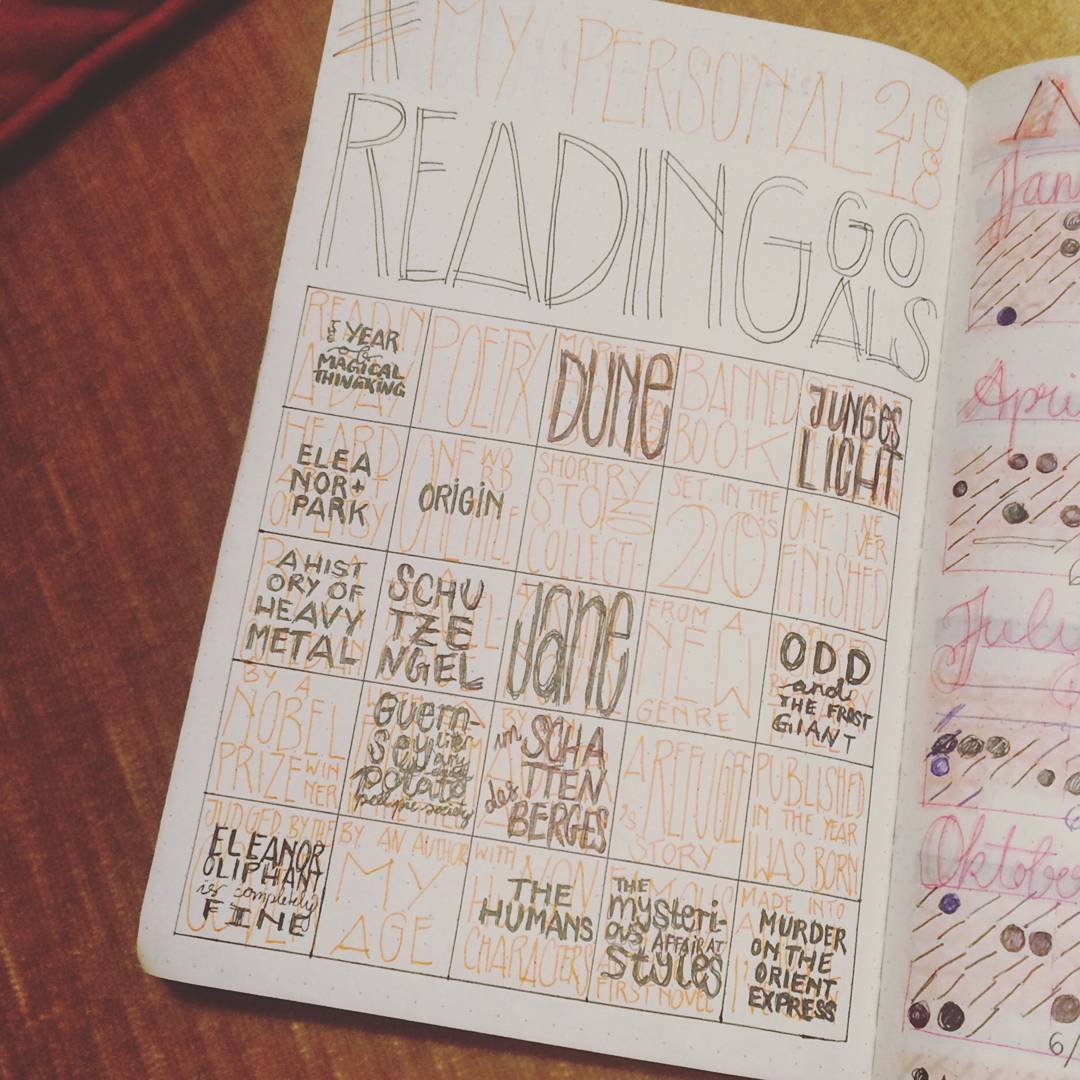 #MY PERSONAL 2018
READING GOALS
READ IN A DAY
THE YEAR
of
MAGICAL
THINGKING
POETRY
DUNE
BANNED
BOOK
JUNGES
LICHT
HEARD
ELEA
NOR+
PARK
ONE WORD
ORIGIN
SHORT
STORY
COLLECTI
SET IN THE
20's
ONE I'VE
EVER
FINISHED
A HIST
ORY OF
HEAVY
METAL
SCHU
TZE
NGEL
Jane
FROM A
NEW
GENRE
ODD
and
THE FROST
GIANT
BY A
NOBEL
PRIZE WIN
NER
Guern-
Sey Liter
ary and
potato
peelpie society
im SCHA
TTEN
des BERGES
A REFUGEE
's STORY
PUBLISHED
IN THE YEAR
I WAS BORN
JUDGED BY THE
ELEANOR
OLIPHANT
is completely
FINE
BY AN AUTHOR
MY
AGE
WITH
THE
HUMANS
CHARACTER
THE
Mysteri-
ous AFFAIR AT
Styles
FIRST NOVEL
MADE INTO
MURDER
ON THE
ORIENT
EXPRESS
Jan
Apri
July
Oktober
6/